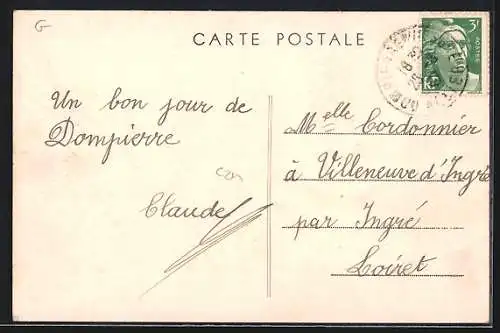 G
CARTE POSTALE
3F
POSTES
Un bon jour de
Dompierre
Claude
Melle Cordonnier
à Villeneuve d'Ingré
par Ingré
Loiret